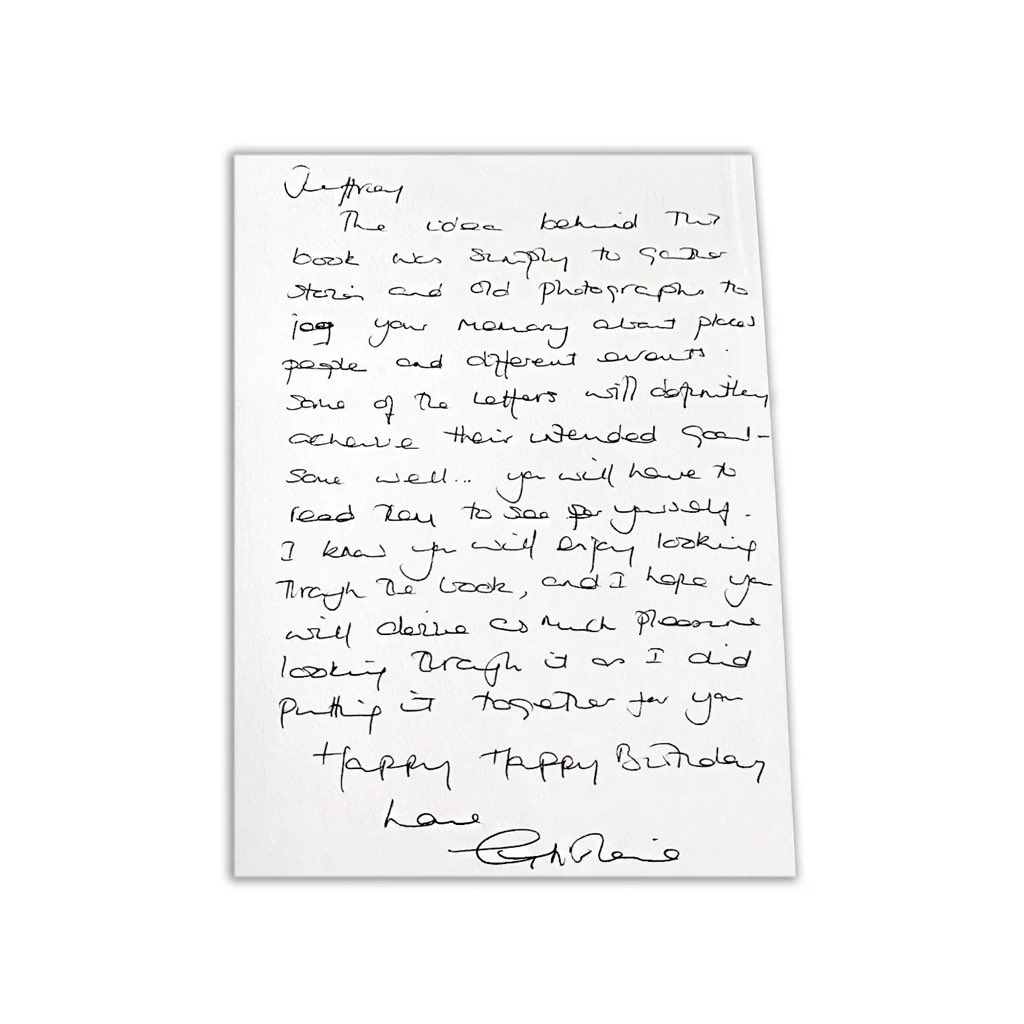 Jeffrey
The idea behind this
book was simply to gather
stories and old photographs to
jog your memory about places
people and different events.
Some of the letters will definitley
achieve their intended goal-
some well... you will have to
read them to see for yourself.
I know you will enjoy looking
through the book, and I hope you
will derive as much pleasure
looking through it as I did
putting it together for you
Happy Happy Birthday
Love